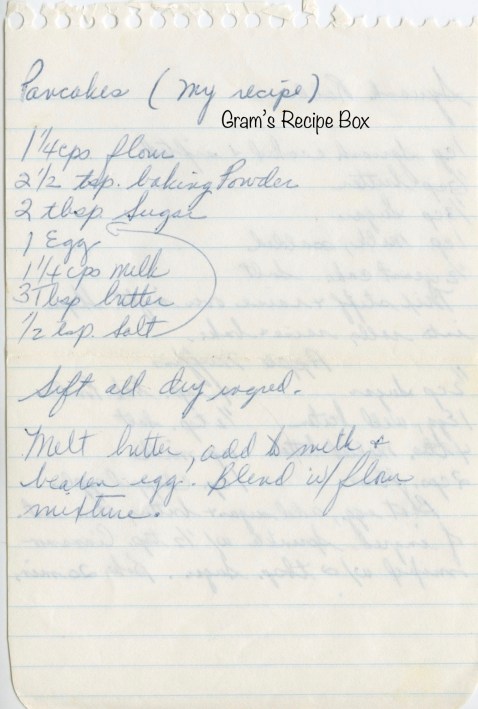 Pancakes (My recipe)
Gram's Recipe Box
1 1/4 cps flour
2 1/2 tsp. baking Powder
2 tbsp Sugar
1 Egg
1 1/4 cps milk
3 Tbsp butter
1/2 tsp. Salt
Sift all dry ingred.
Melt butter, add to milk &
beaten egg. Blend w/ flour
mixture.